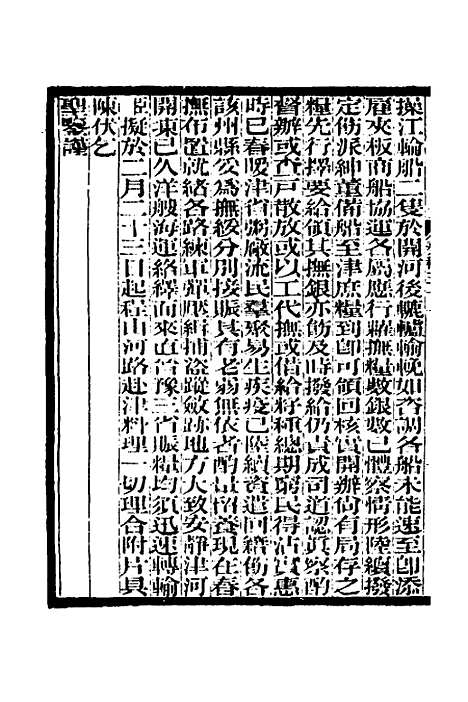 操江輪船二隻於開河後轆轤輸輓如咨調各船未能速至卽添
雇夾板商船協運各屬應行糴撫糧數銀數已體察情形陸續撥
定飭派紳董備船至津庶糧到卽可領回核實開辦尙有局存之
糧先行擇要給領其撫銀亦飭及時撥給仍責成司道認真察酌
督辦或查戸散放或以工代撫或借給籽種總期窮民得沾實惠
時已春暖津省粥廠流民羣聚易生疾疫已陸續資遣回籍飭各
該州縣妥為撫綏分別接賑其有老弱無依者酌量留養現在春
撫布置就緒各路練軍彈壓緝捕盜蹤斂跡地方大致安靜津河
開凍已久洋艘海運絡繹而來直晉豫三省賑糧均須迅速轉輸
擬於二月二十三日起程由河路赴津料理一切理合附片具
陳伏乞
聖鑒謹